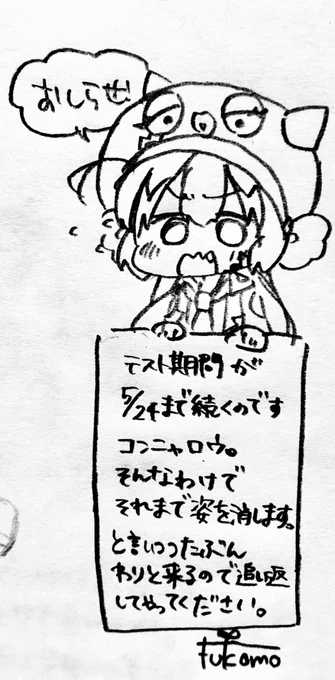 おしらせ!
テスト期間が
5/24まで続くのです
コンニャロウ。
そんなわけで
それまで姿を消します。
と言いつつたぶん
わりと来るので追い返
してやってください。
fukomo